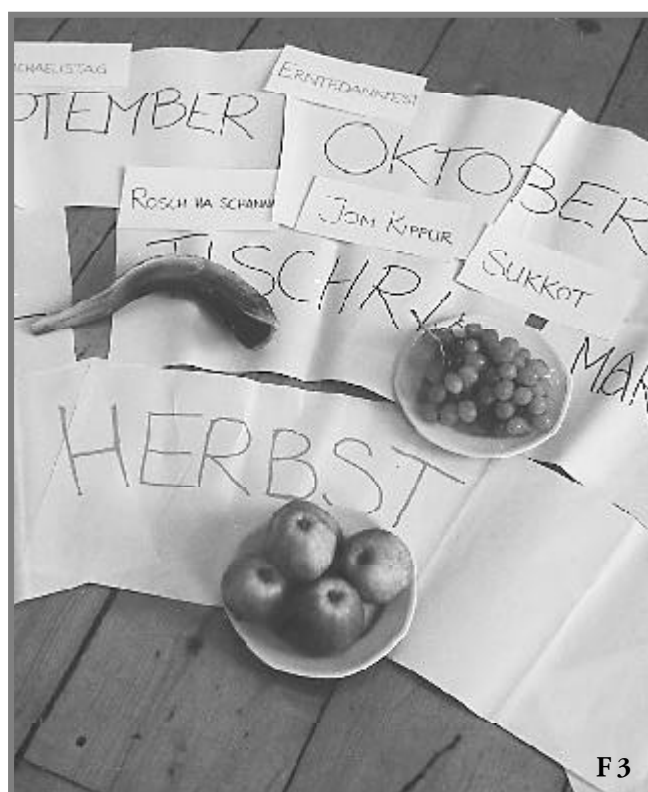 CHAELISTAG
ERNTEDANKFEST
PTEMBER
OKTOBER
ROSCH HA SCHANA
JOM KIPPUR
SUKKOT
TISCHRI
MAR
HERBST
F 3